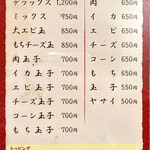 デラックス 1,200円
ミックス 950円
大エビ玉 850円
もちチーズ玉 850円
肉玉子 700円
イカ玉子 700円
エビ玉子 700円
チーズ玉子 700円
コーン玉子 700円
もち玉子 700円
肉 650円
イカ 650円
エビ 650円
チーズ 650円
コーン 650円
もち 650円
玉子 550円
ヤサイ 500円
トッピング